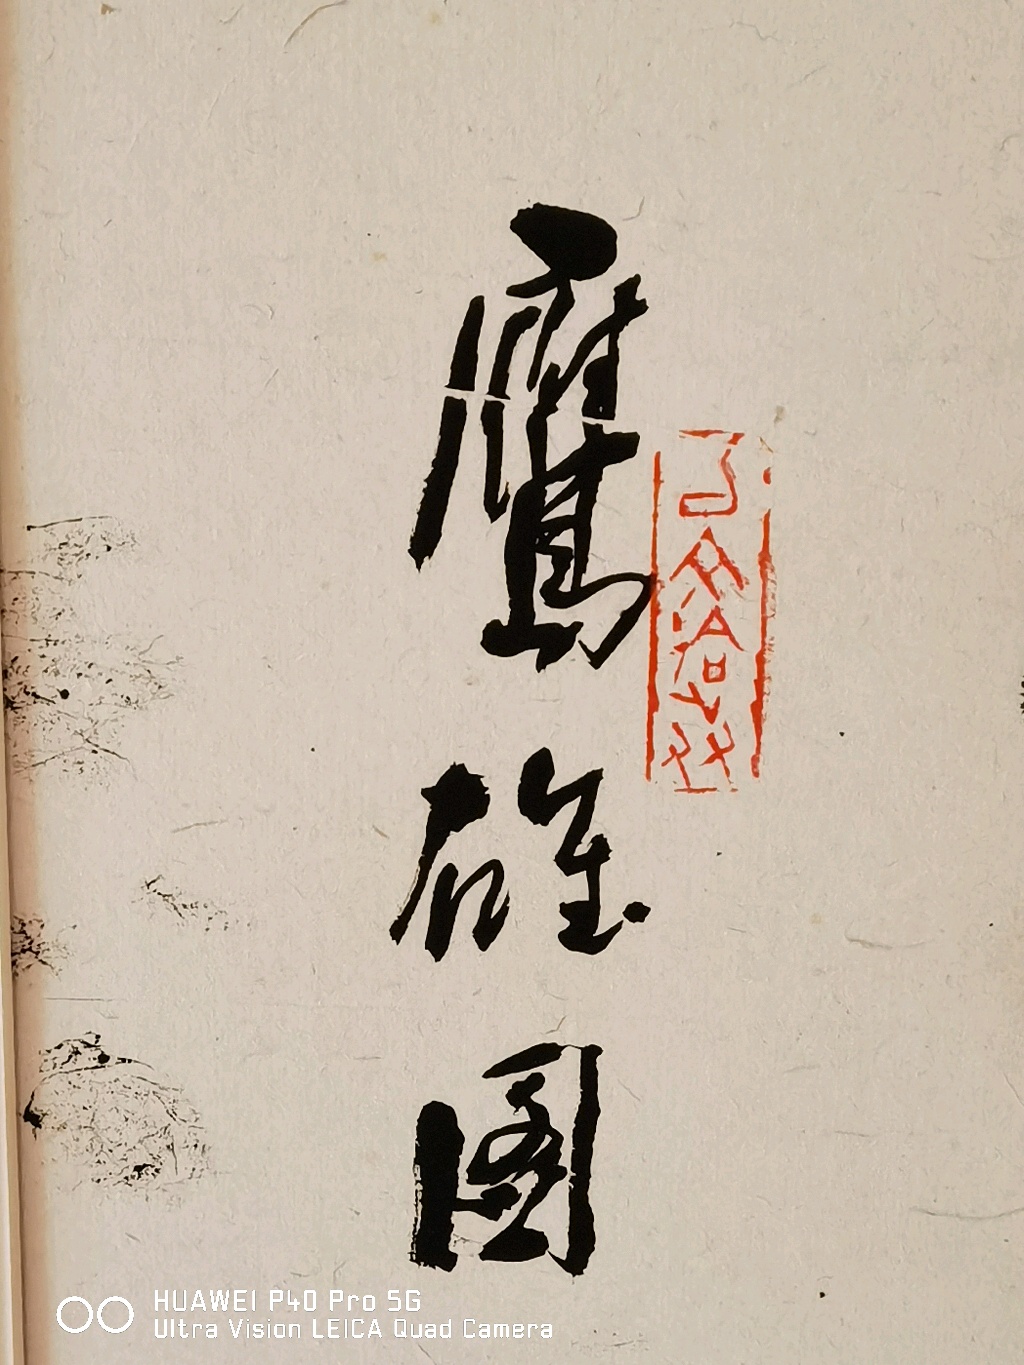 鹰雄图
HUAWEI P40 Pro 5G
Ultra Vision LEICA Quad Camera